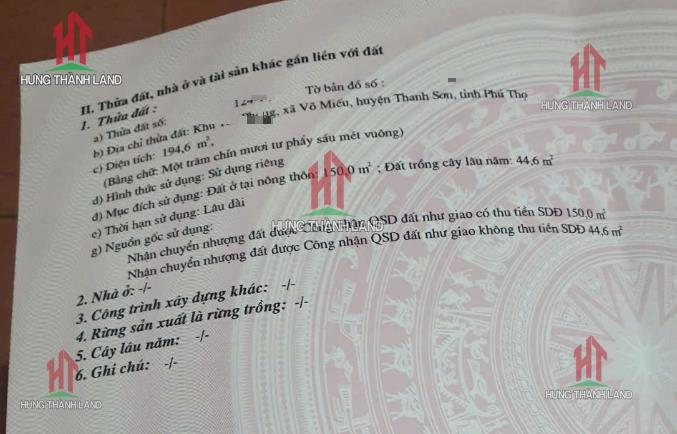 II. Thửa đất, nhà ở và tài sản khác gắn liền với đất
1. Thửa đất :
a) Thửa đất số: Tờ bản đồ số :
b) Địa chỉ thửa đất: Khu xã Võ Miếu, huyện Thanh Sơn, tỉnh Phú Thọ
c) Diện tích: 194,6 m²,
(Bằng chữ: Một trăm chín mươi tư phẩy sáu mét vuông)
d) Hình thức sử dụng: Sử dụng riêng
đ) Mục đích sử dụng: Đất ở tại nông thôn: 150,0 m² ; Đất trồng cây lâu năm: 44,6 m²
e) Thời hạn sử dụng: Lâu dài
g) Nguồn gốc sử dụng:
Nhận chuyển nhượng đất được Công nhận QSD đất như giao có thu tiền SDĐ 150,0 m²
Nhận chuyển nhượng đất được Công nhận QSD đất như giao không thu tiền SDĐ 44,6 m²
2. Nhà ở: -/-
3. Công trình xây dựng khác: -/-
4. Rừng sản xuất là rừng trồng: -/-
5. Cây lâu năm: -/-
6. Ghi chú: -/-
HƯNG THÀNH LAND
HƯNG THÀNH LAND
HƯNG THÀNH LAND
HƯNG THÀNH LAND
HƯNG THÀNH LAND